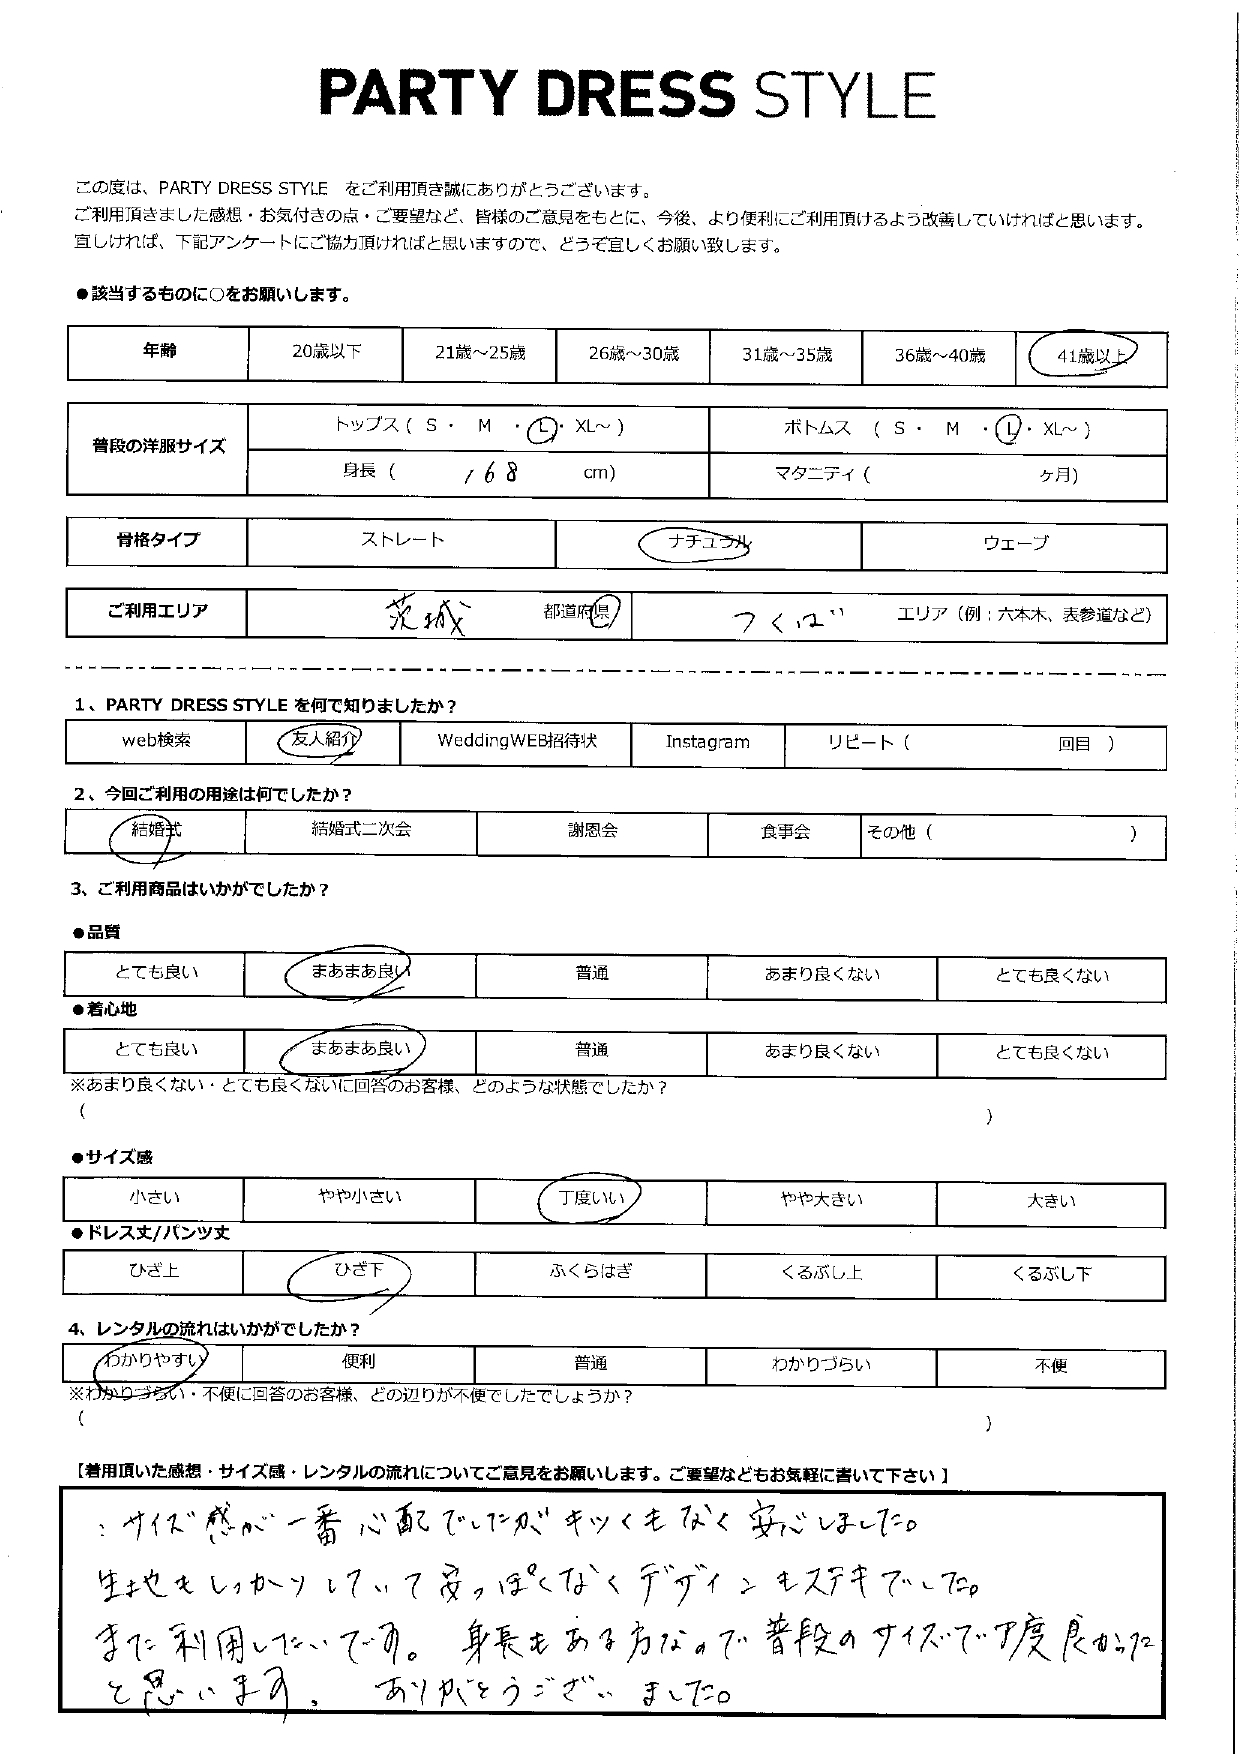 PARTY DRESS STYLE
この度は、PARTY DRESS STYLE をご利用頂き誠にありがとうございます。
ご利用頂きました感想・お気付きの点・ご要望など、皆様のご意見をもとに、今後、より便利にご利用頂けるよう改善していければと思います。
宜しければ、下記アンケートにご協力頂ければと思いますので、どうぞ宜しくお願い致します。
●該当するものに○をお願いします。
年齢 20歳以下 21歳～25歳 26歳～30歳 31歳～35歳 36歳～40歳 41歳以上
普段の洋服サイズ トップス ( S ・ M ・ L ・ XL～ ) ボトムス ( S ・ M ・ L ・ XL～ )
身長 ( 168 cm) マタニティ ( ヶ月)
骨格タイプ ストレート ナチュラル ウェーブ
ご利用エリア 茨城 都道府県 つくば エリア（例：六本木、表参道など）
1、PARTY DRESS STYLE を何で知りましたか？
web検索 友人紹介 WeddingWEB招待状 Instagram リピート ( 回目 )
2、今回ご利用の用途は何でしたか？
結婚式 結婚式二次会 謝恩会 食事会 その他 ( )
3、ご利用商品はいかがでしたか？
●品質
とても良い まあまあ良い 普通 あまり良くない とても良くない
●着心地
とても良い まあまあ良い 普通 あまり良くない とても良くない
※あまり良くない・とても良くないに回答のお客様、どのような状態でしたか？
( )
●サイズ感
小さい やや小さい 丁度いい やや大きい 大きい
●ドレス丈/パンツ丈
ひざ上 ひざ下 ふくらはぎ くるぶし上 くるぶし下
4、レンタルの流れはいかがでしたか？
わかりやすい 便利 普通 わかりづらい 不便
※わかりづらい・不便に回答のお客様、どの辺りが不便でしたでしょうか？
( )
【着用頂いた感想・サイズ感・レンタルの流れについてご意見をお願いします。ご要望などもお気軽に書いて下さい 】
：サイズ感が一番心配でしたがキツくもなく安心しました。
生地もしっかりしていて安っぽくなくデザインもステキでした。
また利用したいです。身長もある方なので普段のサイズで丁度良かった
と思います。ありがとうございました。